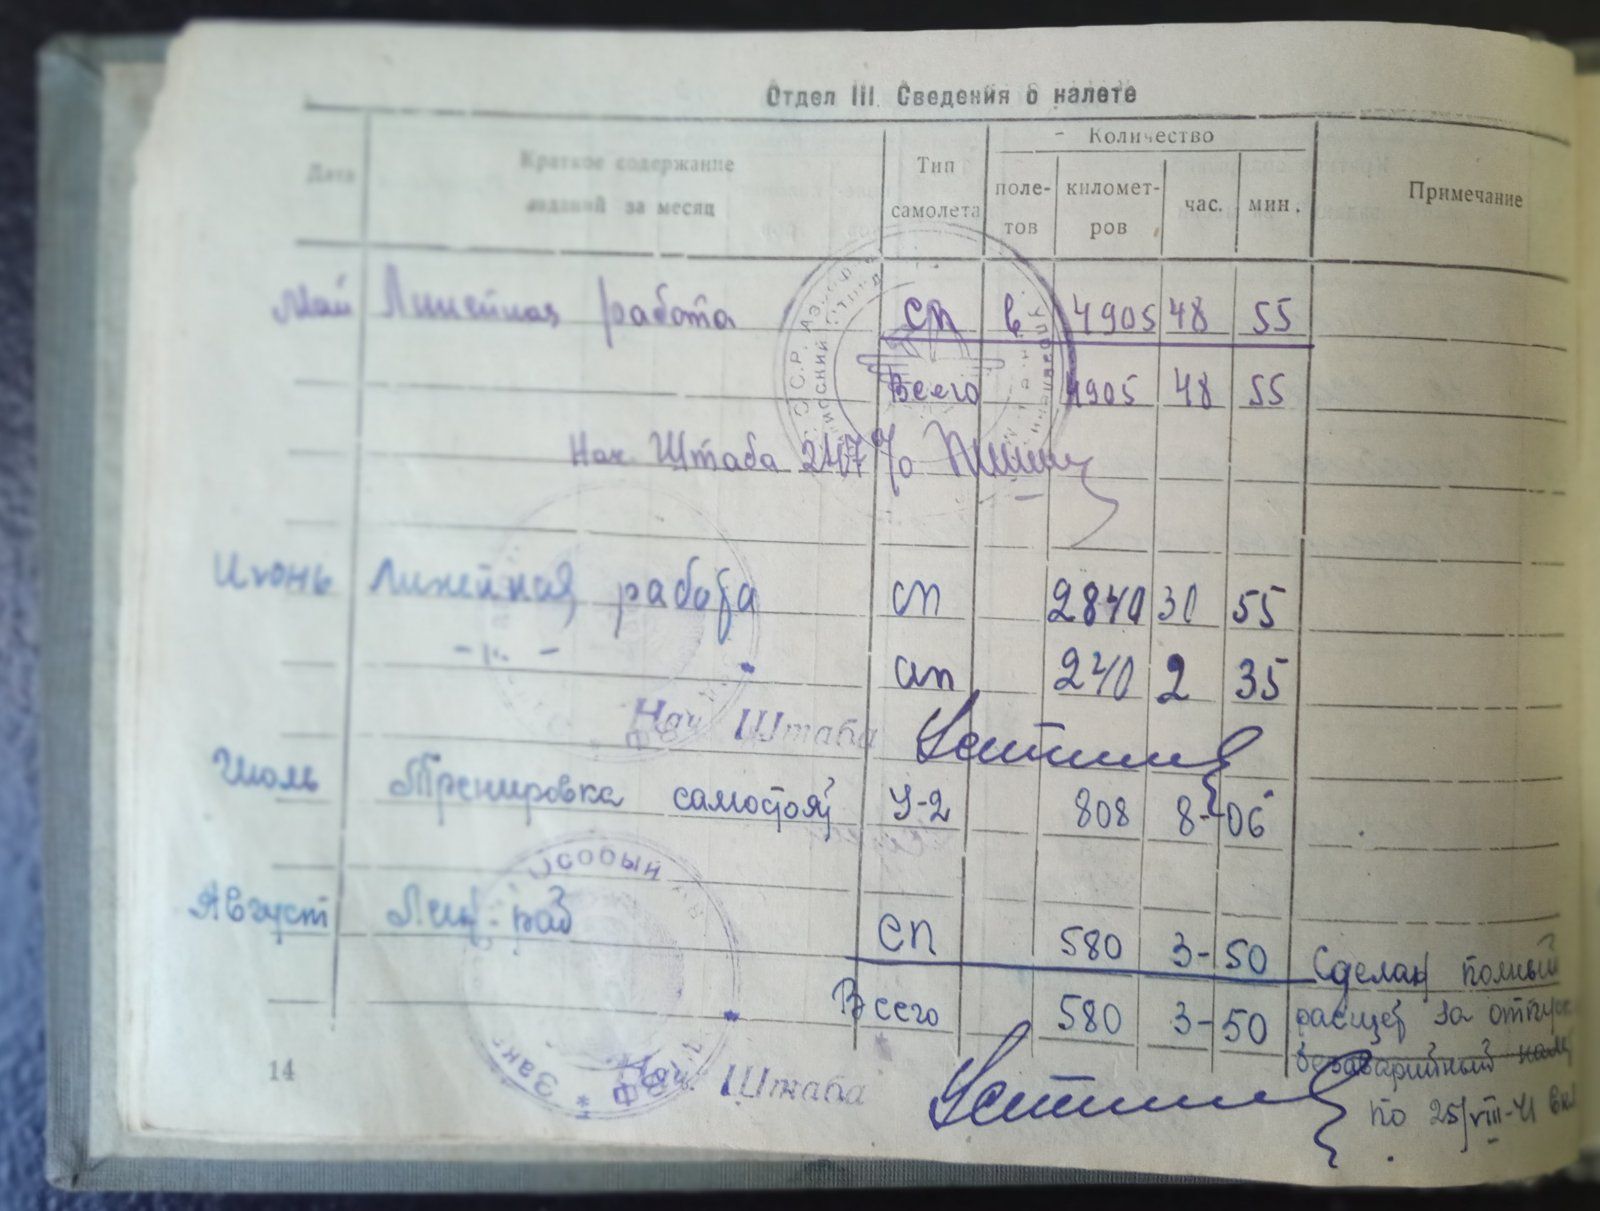 Отдел III. Сведения о налете
Дата Краткое содержание заданий за месяц Тип самолета Количество Примечание
полетов километров час. мин.
Май Линейная работа СП 4905 48 55
Всего 4905 48 55
Нач. Штаба
Июнь Линейная работа СП 2840 30 55
-"- 240 2 35
Нач. Штаба
Июль Тренировка самостоят У-2 808 8-06
Август Лин. раб СП 580 3-50
Всего 580 3-50
Сделан полный
расщет за отпуск
безаварийный
по 25/VIII-41
Нач. Штаба
14
Особый